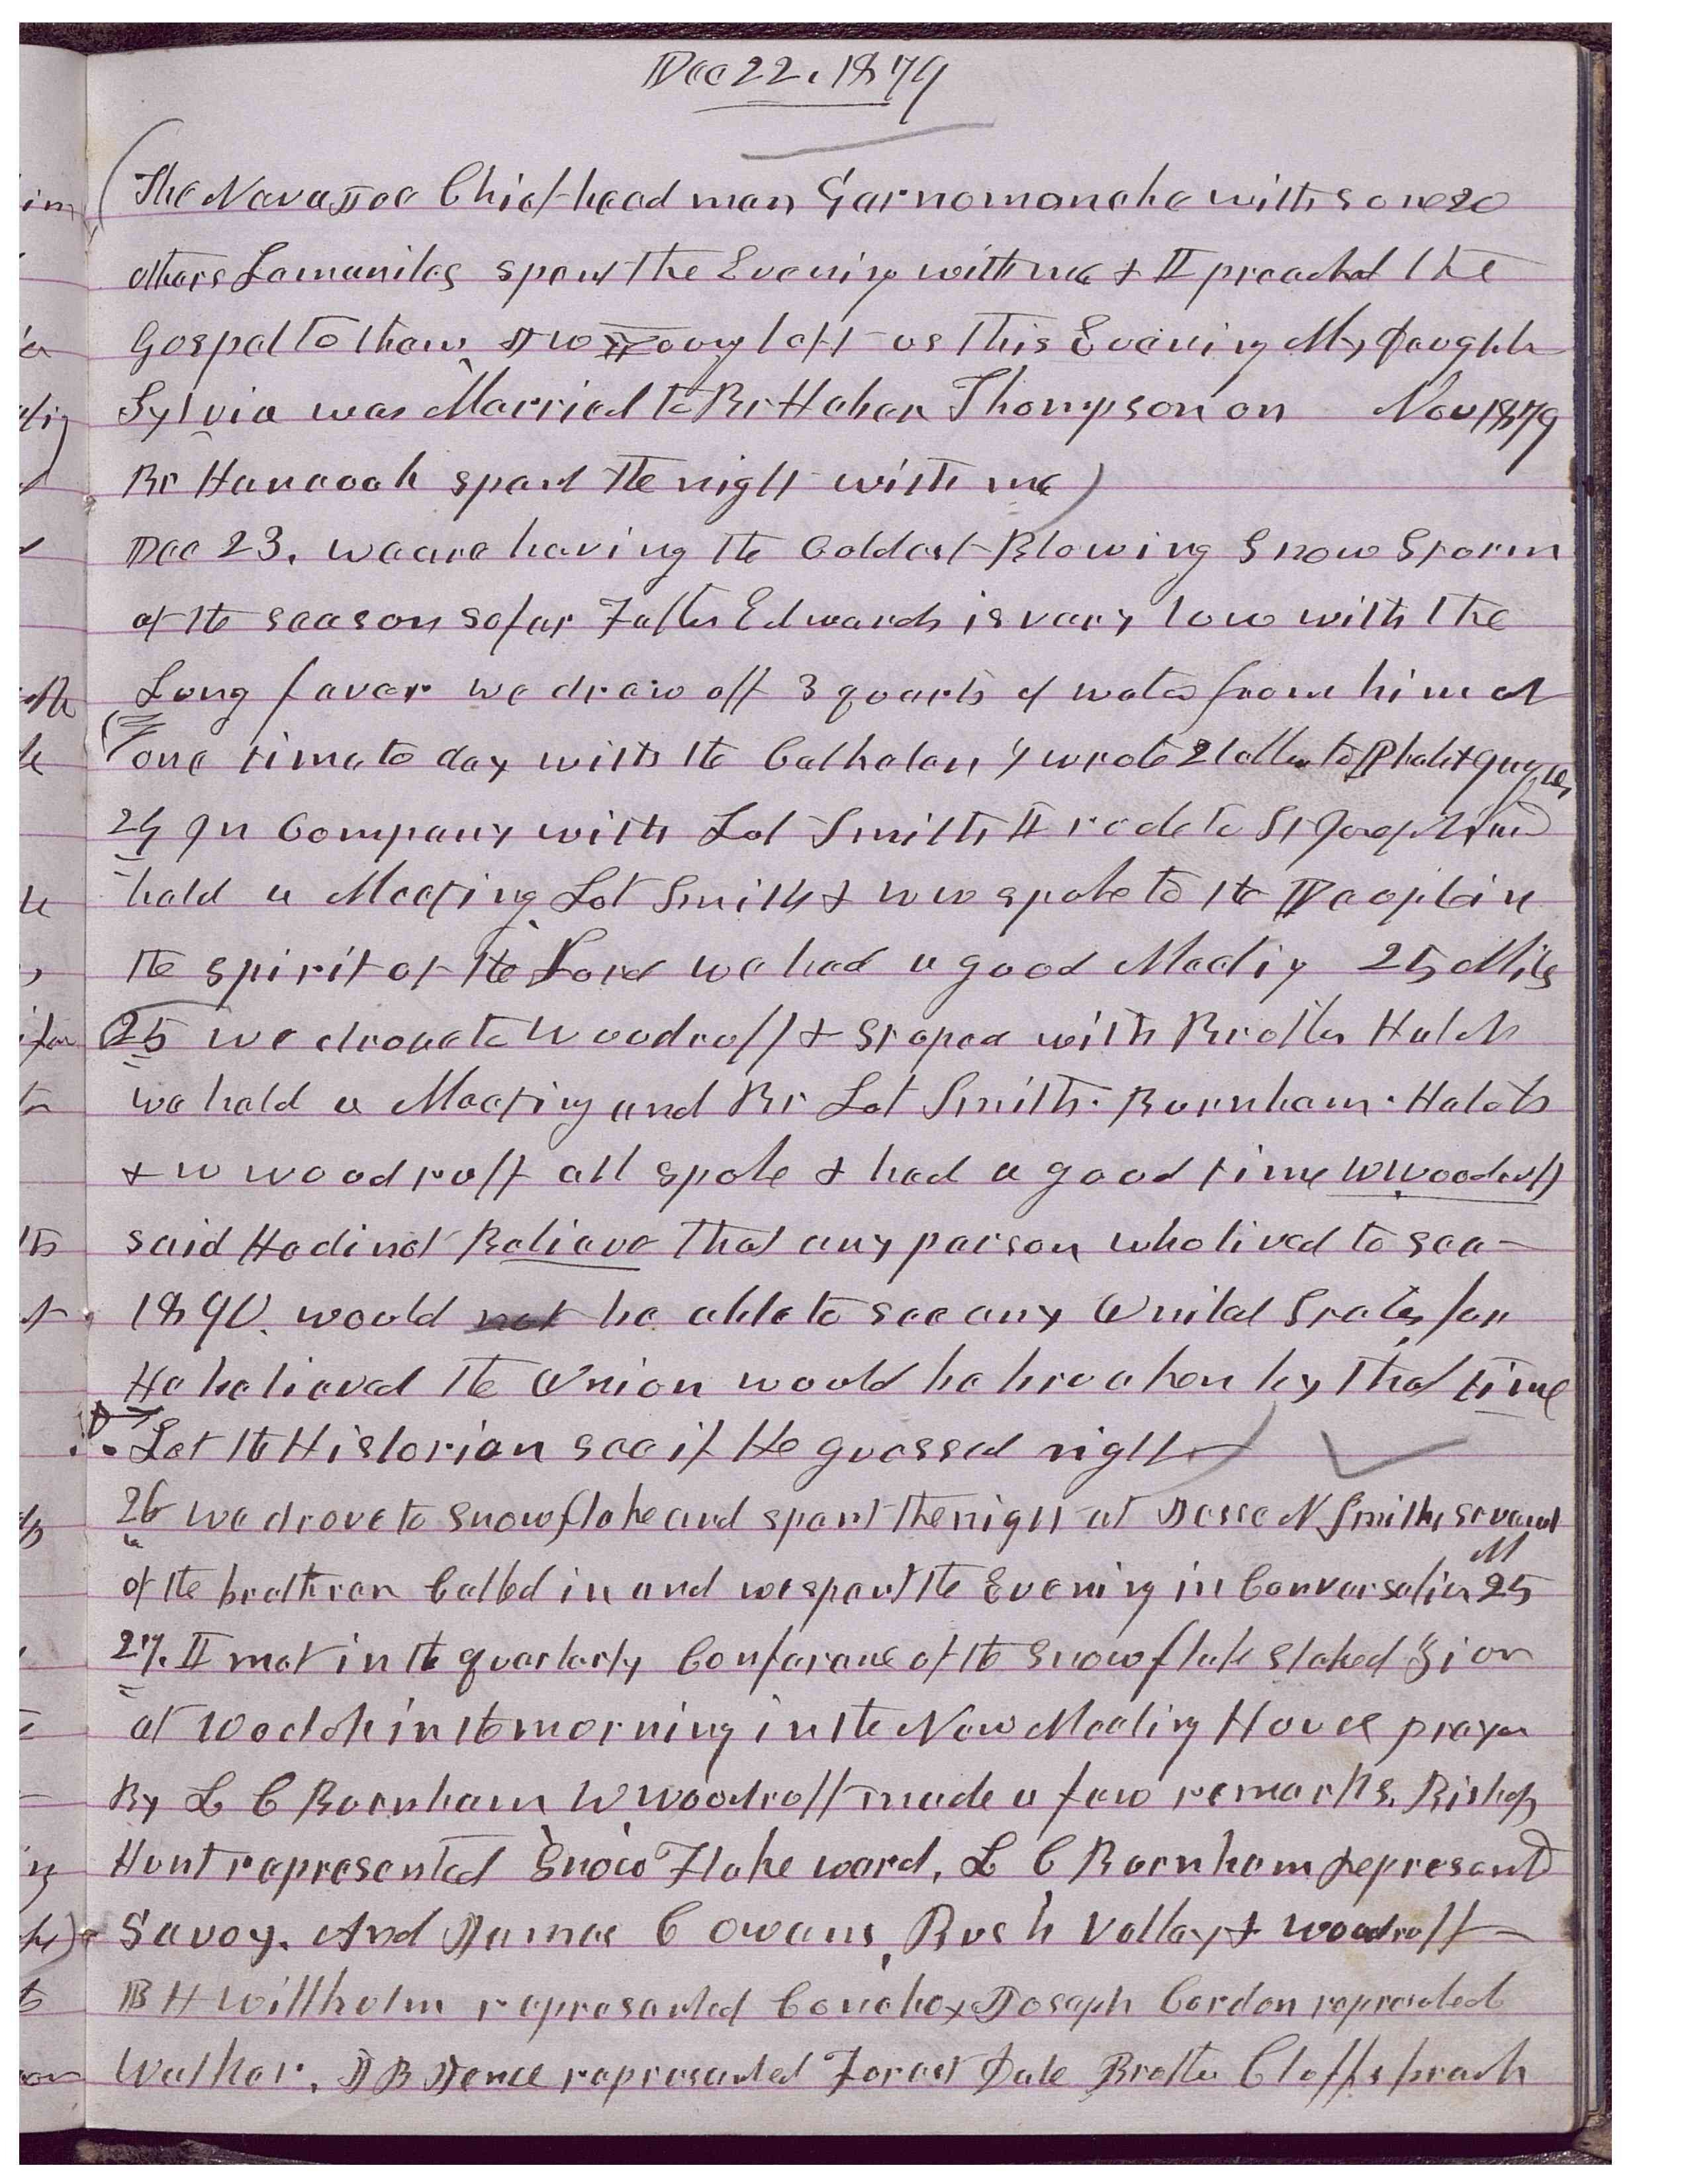 Dec 22, 1879
The Navajoe Chief head man Garnomoncke with some 20
others Lamanites spent the Evening with me & I preached the
Gospel to them. J W Young left us this Evening My daughter
Sylvia was Married to Br Heber Thompson on Nov 1879
Br Hancock spent the night with me)
Dec 23. we are having the Coldest Blowing Snow Storm
of the season so far Father Edwards is very low with the
Lung fever we drew off 3 quarts of water from him at
one time to day with the Cathalan I wrote 2 letters to Phebe &
24 In Company with Lot Smith I rode to St Joseph and
held a Meeting Lot Smith & W W spoke to the People in
the spirit of the Lord we had a good Meeting 25 Miles
25 we drove to Woodruff & Stoped with Brother Hatch
we held a Meeting and Br Lot Smith. Burnham. Hatch
& W Woodruff all spoke & had a good time W Woodruff
said He did not Believe that any person who lived to see
1890. would not be able to see any United States for
He believed the Union would be broaken by that time
Let the Historian see if He guessed right
26 We drove to Snowflake and spent the night at Jesse N Smiths several
of the brethren Called in and we spent the Evening in Conversation 25 M
27. I met in the quarterly Conference of the Snowflake Stake of Zion
at 10 oclok in the morning in the New Meeting House prayer
By L C Burnham W Woodruff made a few remarks. Bishop
Hunt represented Snow Flake ward, L C Burnham represented
Savoy. And James C Owens, Bush Valley & Woodruff
B H Willhelm represented Concho & Joseph Cardon represented
Walker. J B Jence represented Forest Dale Brother Cloffs branch